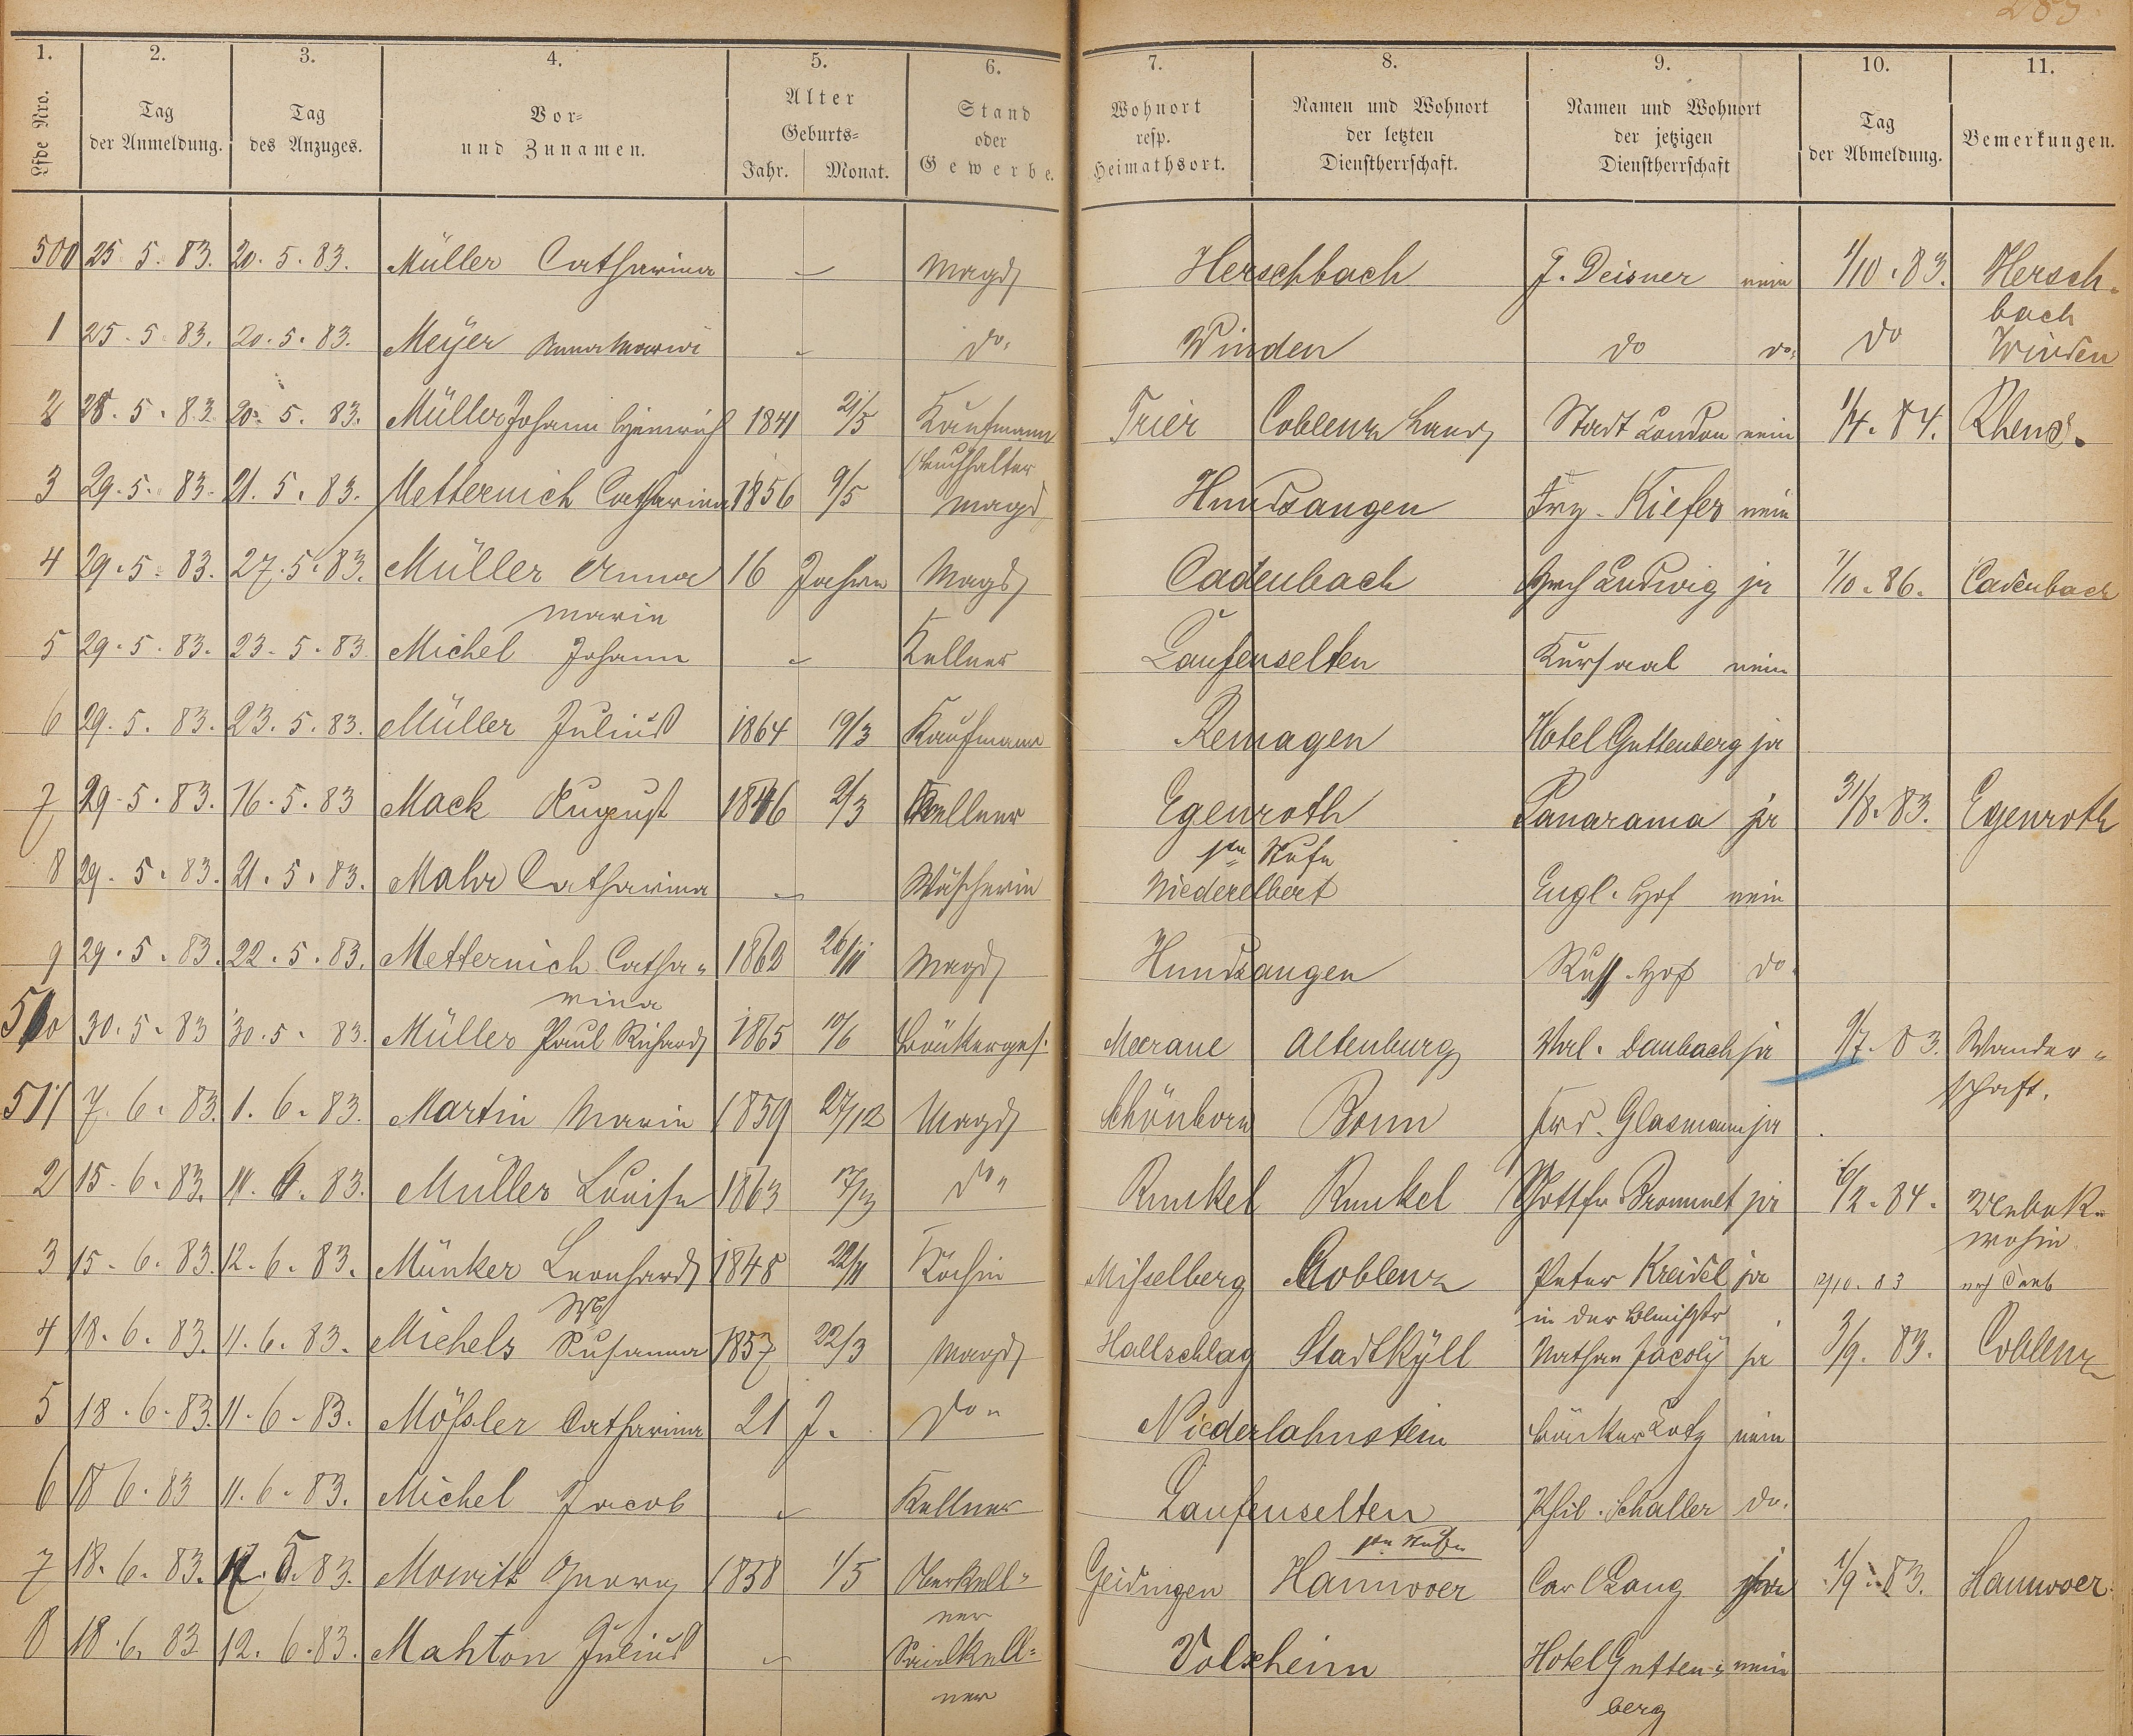 283
1. 2. 3. 4. 5. 6. 7. 8. 9. 10. 11.
Lfde Nro. Tag der Anmeldung. Tag des Anzuges. Vor- und Zunamen. Alter Geburts- Jahr. Monat. Stand oder Gewerbe. Wohnort resp. Heimathsort. Namen und Wohnort der letzten Dienstherrschaft. Namen und Wohnort der jetzigen Dienstherrschaft Tag der Abmeldung. Bemerkungen.
500 25 5. 83. 20. 5. 83. Müller Catharina — Magd Herschbach J. Deisner nein 1/10. 83. Hersch-
bach
1 25. 5. 83. 20. 5. 83. Meyer Anna Maria — do. Winden do do. do Winden
2 28. 5. 83 20. 5. 83. Müller Johann Heinrich 1841 21/5 Kaufmann Trier Coblenz Stadt London nein 1/4. 84. Rhens.
Buchhalter
3 29. 5. 83. 21. 5. 83. Metternich Catharina 1856 9/5 Magd Hundsangen Kiefer nein
4 29. 5. 83. 27. 5. 83. Müller Anna 16 Jahre Magd Cadenbach Ludwig ja 1/10. 86. Cadenbach
Maria
5 29. 5. 83. 23. 5. 83. Michel Johann — Kellner Laufenselten Kursaal nein
6 29. 5. 83. 23. 5. 83. Müller Julius 1864 19/3 Kaufmann Remagen Hotel Guttenberg ja
7 29. 5. 83. 16. 5. 83 Mack August 1846 2/3 Kellner Egenroth Panarama ja 31/8. 83. Egenroth
8 29. 5. 83. 21. 5. 83. Mahr Catharina — Wäscherin Niederelbert Engl. Hof nein
9 29. 5. 83. 22. 5. 83. Metternich Catha- 1862 26/11 Magd Hundsangen Russ. Hof do.
rina
510 30. 5. 83 30. 5. 83. Müller Paul Richard 1865 10/6 Bäckerges. Meerane Altenburg Daubach ja 9/7. 83. Wander-
schaft.
511 7. 6. 83. 1. 6. 83. Martin Maria 1859 27/12 Magd Schönborn Bonn Glasmann ja
2 15. 6. 83. 11. 6. 83. Müller Louise 1863 17/3 do. Runkel Runkel Gottfr. Brommet ja 6/2. 84. Unbek.
wohin
3 15. 6. 83. 12. 6. 83. Münker Leonhard 1848 22/11 Köchin Misselberg Coblenz Peter Kreidel ja 12/10. 83 nach
4 18. 6. 83. 11. 6. 83. Michels Susanna 1857 22/3 Magd Hallschlag Stadtkyll Nathan Jacoby ja 3/9. 83. Coblenz
5 18. 6. 83. 11. 6. 83. Mößler Catharina 21 J. do. Niederlahnstein Bäcker Lotz nein
6 18 6. 83 11. 6. 83. Michel Jacob — Kellner Laufenselten Phil. Schaller do.
7 18. 6. 83. 17. 5. 83. Mowitt Georg 1858 1/5 Oberkell- Geidingen Hannover Carl Lang ja 1/9. 83. Hannover
ner
8 18. 6. 83 12. 6. 83. Mahton Julius — Saalkell- Volxheim Hotel Gutten- nein
ner berg